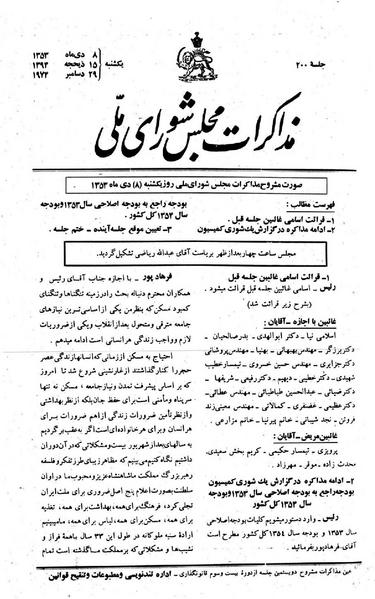 جلسه ۲۰۰
یکشنبه
۸ دی‌ماه ۱۳۵۳
۱۵ ذیحجه ۱۳۹۴
۲۹ دسامبر ۱۹۷۴
مذاکرات مجلس شورای ملی
صورت مشروح مذاکرات مجلس شورای ملی روز یکشنبه (۸) دی ماه ۱۳۵۳
فهرست مطالب:
۱- قرائت اسامی غائبین جلسه قبل.
۲- ادامه مذاکره در گزارش یک شوری کمیسیون
بودجه راجع به بودجه اصلاحی سال ۱۳۵۳ و بودجه
سال ۱۳۵۴ کل کشور.
۳- تعیین موقع جلسه آینده - ختم جلسه.
مجلس ساعت چهار بعدازظهر بریاست آقای عبدالله ریاضی تشکیل گردید.
۱- قرائت اسامی غائبین جلسه قبل
رئیس - اسامی غائبین جلسه قبل قرائت میشود.
(بشرح زیر قرائت شد)
غائبین با اجازه - آقایان:
اسلامی نیا - دکتر ابوالهدی - بدرصالحیان -
دکتر برزگر - مهندس بهبهانی - بهنیا - مهندس پروشانی
دکتر جزایری - مهندس حسین خسروی - تیمسار خطیب
شهیدی - دکتر خطیبی - دیهیم - دکتر رفیعی - شریفها -
دکتر ضیائی - عبدالحسین طباطبائی - مهندس عطائی -
دکتر عظیمی - غضنفری - کمالائی - مهندس معینی زند
فروتن - نجد شیبانی - خانم پیرنیا - خانم مزارعی.
غائبین مریض - آقایان:
پرویزی - تیمسار حکیمی - کریم بخش سعیدی.
محدث زاده - موقر - مهرزاد.
۲- ادامه مذاکره در گزارش یک شوری کمیسیون
بودجه راجع به بودجه اصلاحی سال ۱۳۵۳ و بودجه
سال ۱۳۵۴ کل کشور
رئیس - وارد دستور میشویم کلیات بودجه اصلاحی
سال ۱۳۵۳ و بودجه سال ۱۳۵۴ کل کشور مطرح است
آقای فرهادپور بفرمائید.
فرهاد پور - با اجازه جناب آقای رئیس و
همکاران محترم دنباله بحث را در زمینه تنگناها و تنگنای
کمبود مسکن که بنظر من یکی از اساسی ترین نیازهای
جامعه مترقی و متحول بعد از انقلاب و یکی از ضروریات
لازم و واجب زندگی هر انسانی است ادامه میدهم.
احتیاج به مسکن از زمانی که انسانها زندگی عصر
حجر را کنار گذاشتند از غارنشینی شروع شد تا امروز
که بر اساس پیشرفت تمدن و نیاز جامعه، مسکن نه تنها
سرپناه و مأمنی است برای حفظ جان بلکه از نظر بهداشتی
و از نظر تأمین ضرورت زندگی از اهم ضروریات برای
هر انسان و برای هر خانواده‌ای است اگر به عقب برگردیم
به سالهای بعد از شهریور بیست و مشکلاتی که در آن دوران
داشتیم نگاه کنیم می‌بینیم که مظاهر زیبای طرز تفکر و فلسفه
رهبر بزرگ مملکت ما شاهنشاه عزیز و محبوب ما در اوان
سلطنت بصورت اعلام پنج اصل ضروری برای ملت ایران
تجلی کرد، فرهنگ برای همه، بهداشت برای همه، تغذیه
برای همه، مسکن برای همه، لباس برای همه، ما می‌بینیم
ارادهٔ سنیه ملوکانه در طول این ۳۳ سال بافاهمه فراز و
نشیب‌ها و مشکلاتی که بر مملکت ما گذشته است
عین مذاکرات مشروح دویستمین جلسه از دورهٔ بیست و سوم قانونگذاری - اداره تندنویسی و مطبوعات و تنقیح قوانین